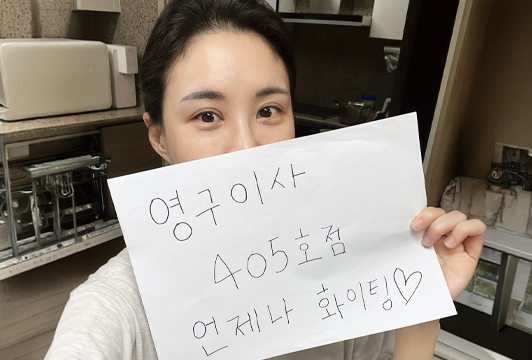 영구이사
405호점
언제나 화이팅♡